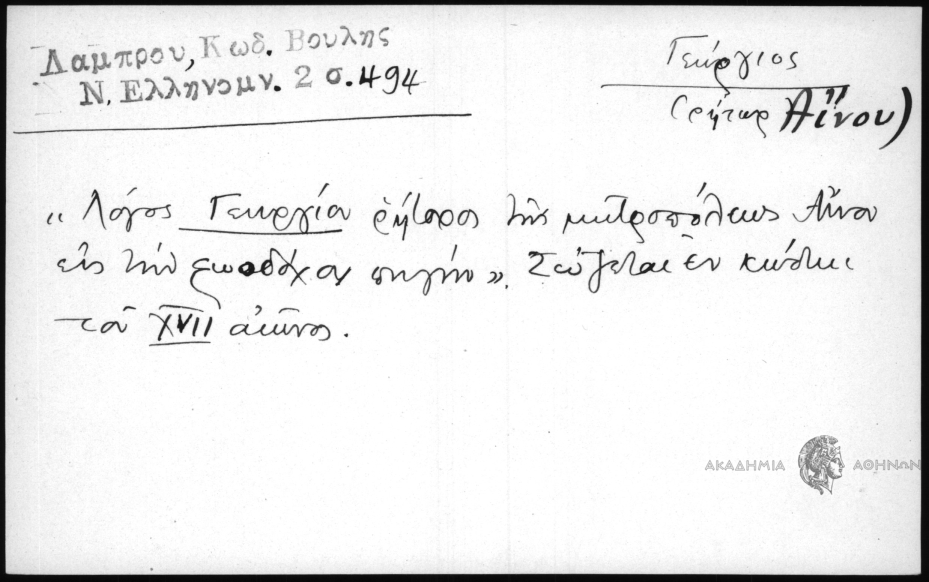 Λαμπρου, Κωδ. Βουλης
Ν. Ελληνομν. 2 σ. 494
Γεώργιος
(ρήτωρ Αἴνου)
"Λόγος Γεωργίου ῥήτορος τῆς μητροπόλεως Αἴνου
εἰς τὴν ζωοδόχον πηγήν". Σώζεται ἐν κώδικι
τοῦ XVII αἰῶνος.
ΑΚΑΔΗΜΙΑ ΑΘΗΝΩΝ